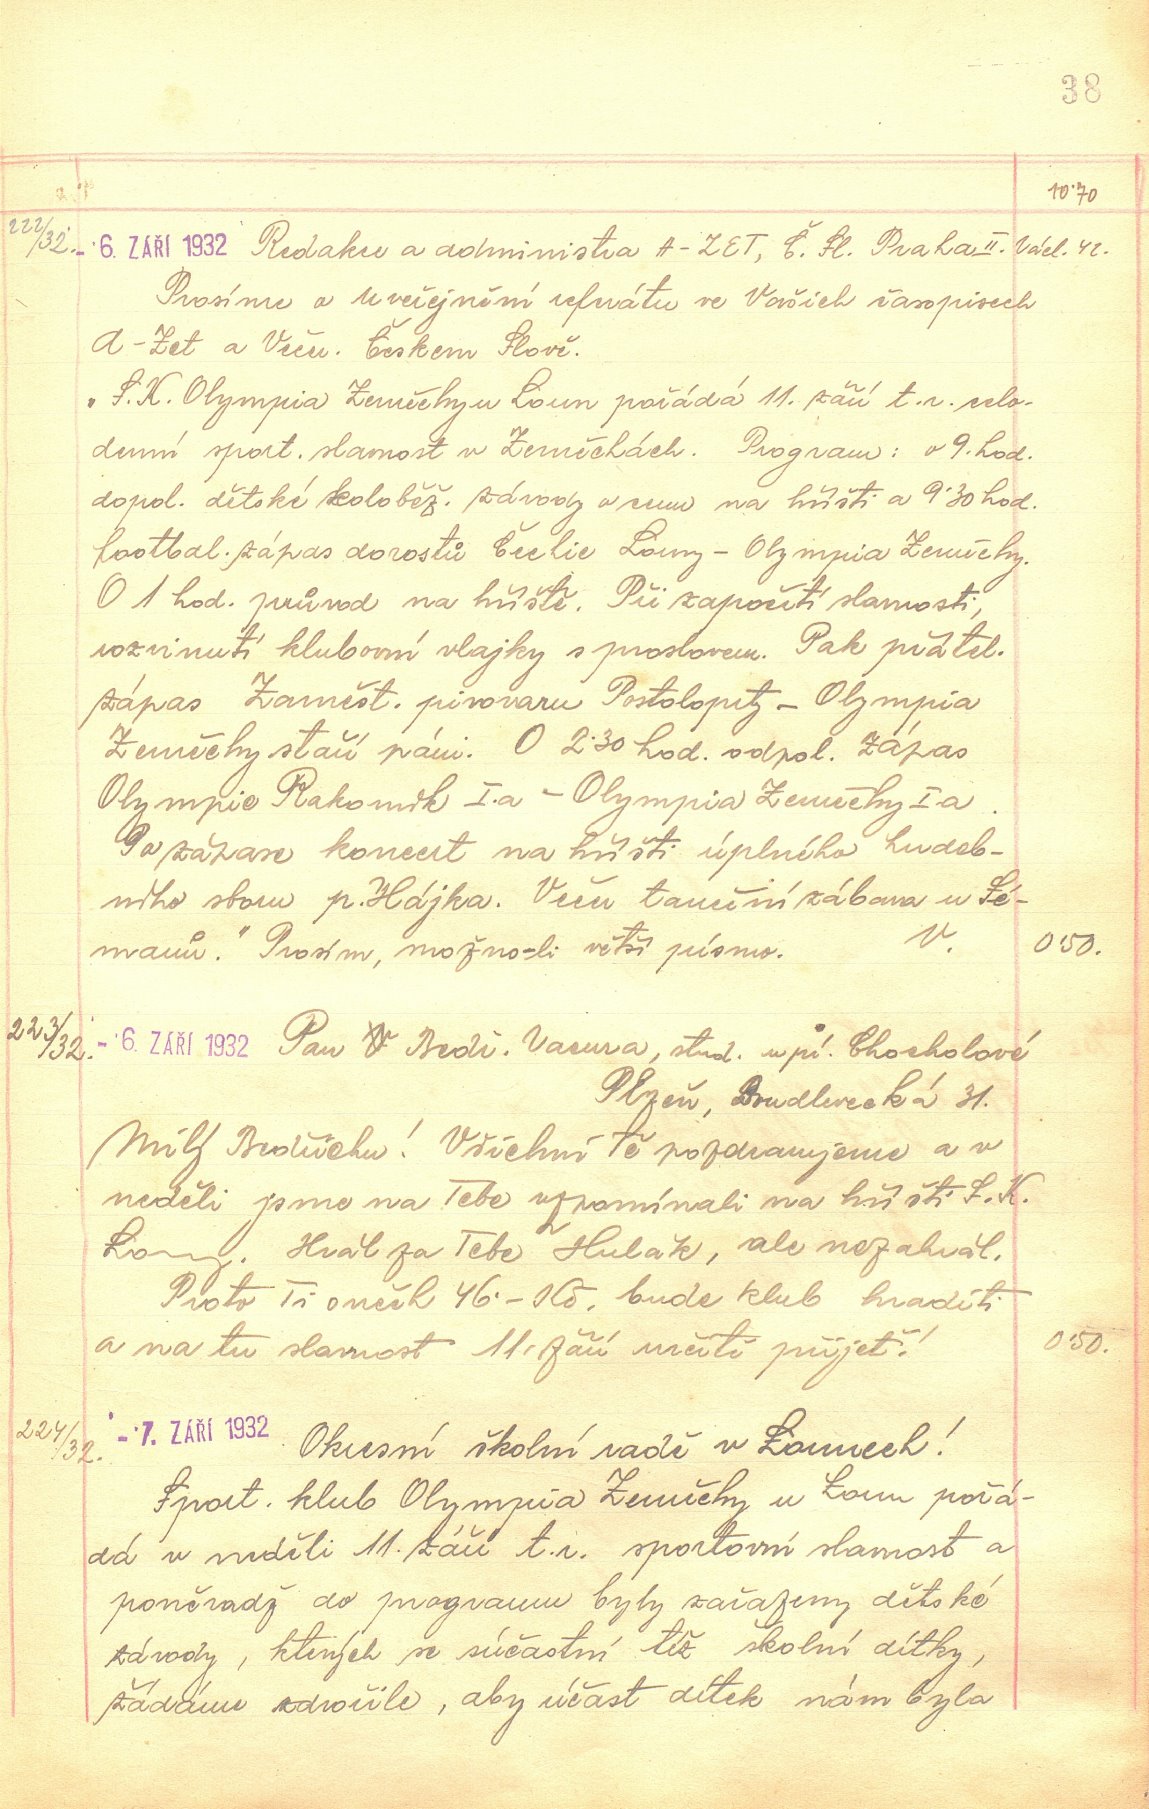 38
10·70
222/32. - 6. ZÁŘÍ 1932 Redakci a administra A-ZET, Č. Sl. Praha II. Václ. 42.
Prosíme o uveřejnění referátu ve Vašich časopisech
A-Zet a Večer. Českem Slově.
„S.K. Olympia Zeměchy u Loun pořádá 11. září t.r. celo-
denní sport. slavnost v Zeměchách. Program: v 9. hod.
dopol. dětské koloběž. závody o cenu na hřišti a 9·30 hod.
footbal. zápas dorostů Čechie Louny - Olympia Zeměchy.
O 1 hod. průvod na hřiště. Při započetí slavnosti,
rozvinutí klubovní vlajky s proslovem. Pak přátel.
zápas Zaměst. pivovaru Postoloprty - Olympia
Zeměchy staří páni. O 2·30 hod. odpol. zápas
Olympie Rakovník I.a - Olympia Zeměchy I a.
Po zápase koncert na hřišti úplného hudeb-
ního sboru p. Hájka. Večer taneční zábava u Sé-
manů." Prosím, možno-li větší písmo. V. 0·50.
223/32. - 6. ZÁŘÍ 1932 Pan Bedř. Vacura, stud. u pí. Chocholové
Plzeň, 31.
Milý Bedřichu! Všichni Tě pozdravujeme a v
neděli jsme na Tebe vzpomínali na hřišti S.K.
Louny. Hrál za Tebe Hulák, ale nezahrál.
Proto Ti oněch 46·- Kč. bude klub hraditi
a na tu slavnost 11. září určitě přijeď! 0·50.
224/32. - 7. ZÁŘÍ 1932 Okresní školní radě v Lounech!
Sport. klub Olympia Zeměchy u Loun pořá-
dá v neděli 11. září t.r. sportovní slavnost a
poněvadž do programu byly zařazeny dětské
závody, kterých se súčastní též školní dítky,
žádáme zdvořile, aby účast dítek nám byla